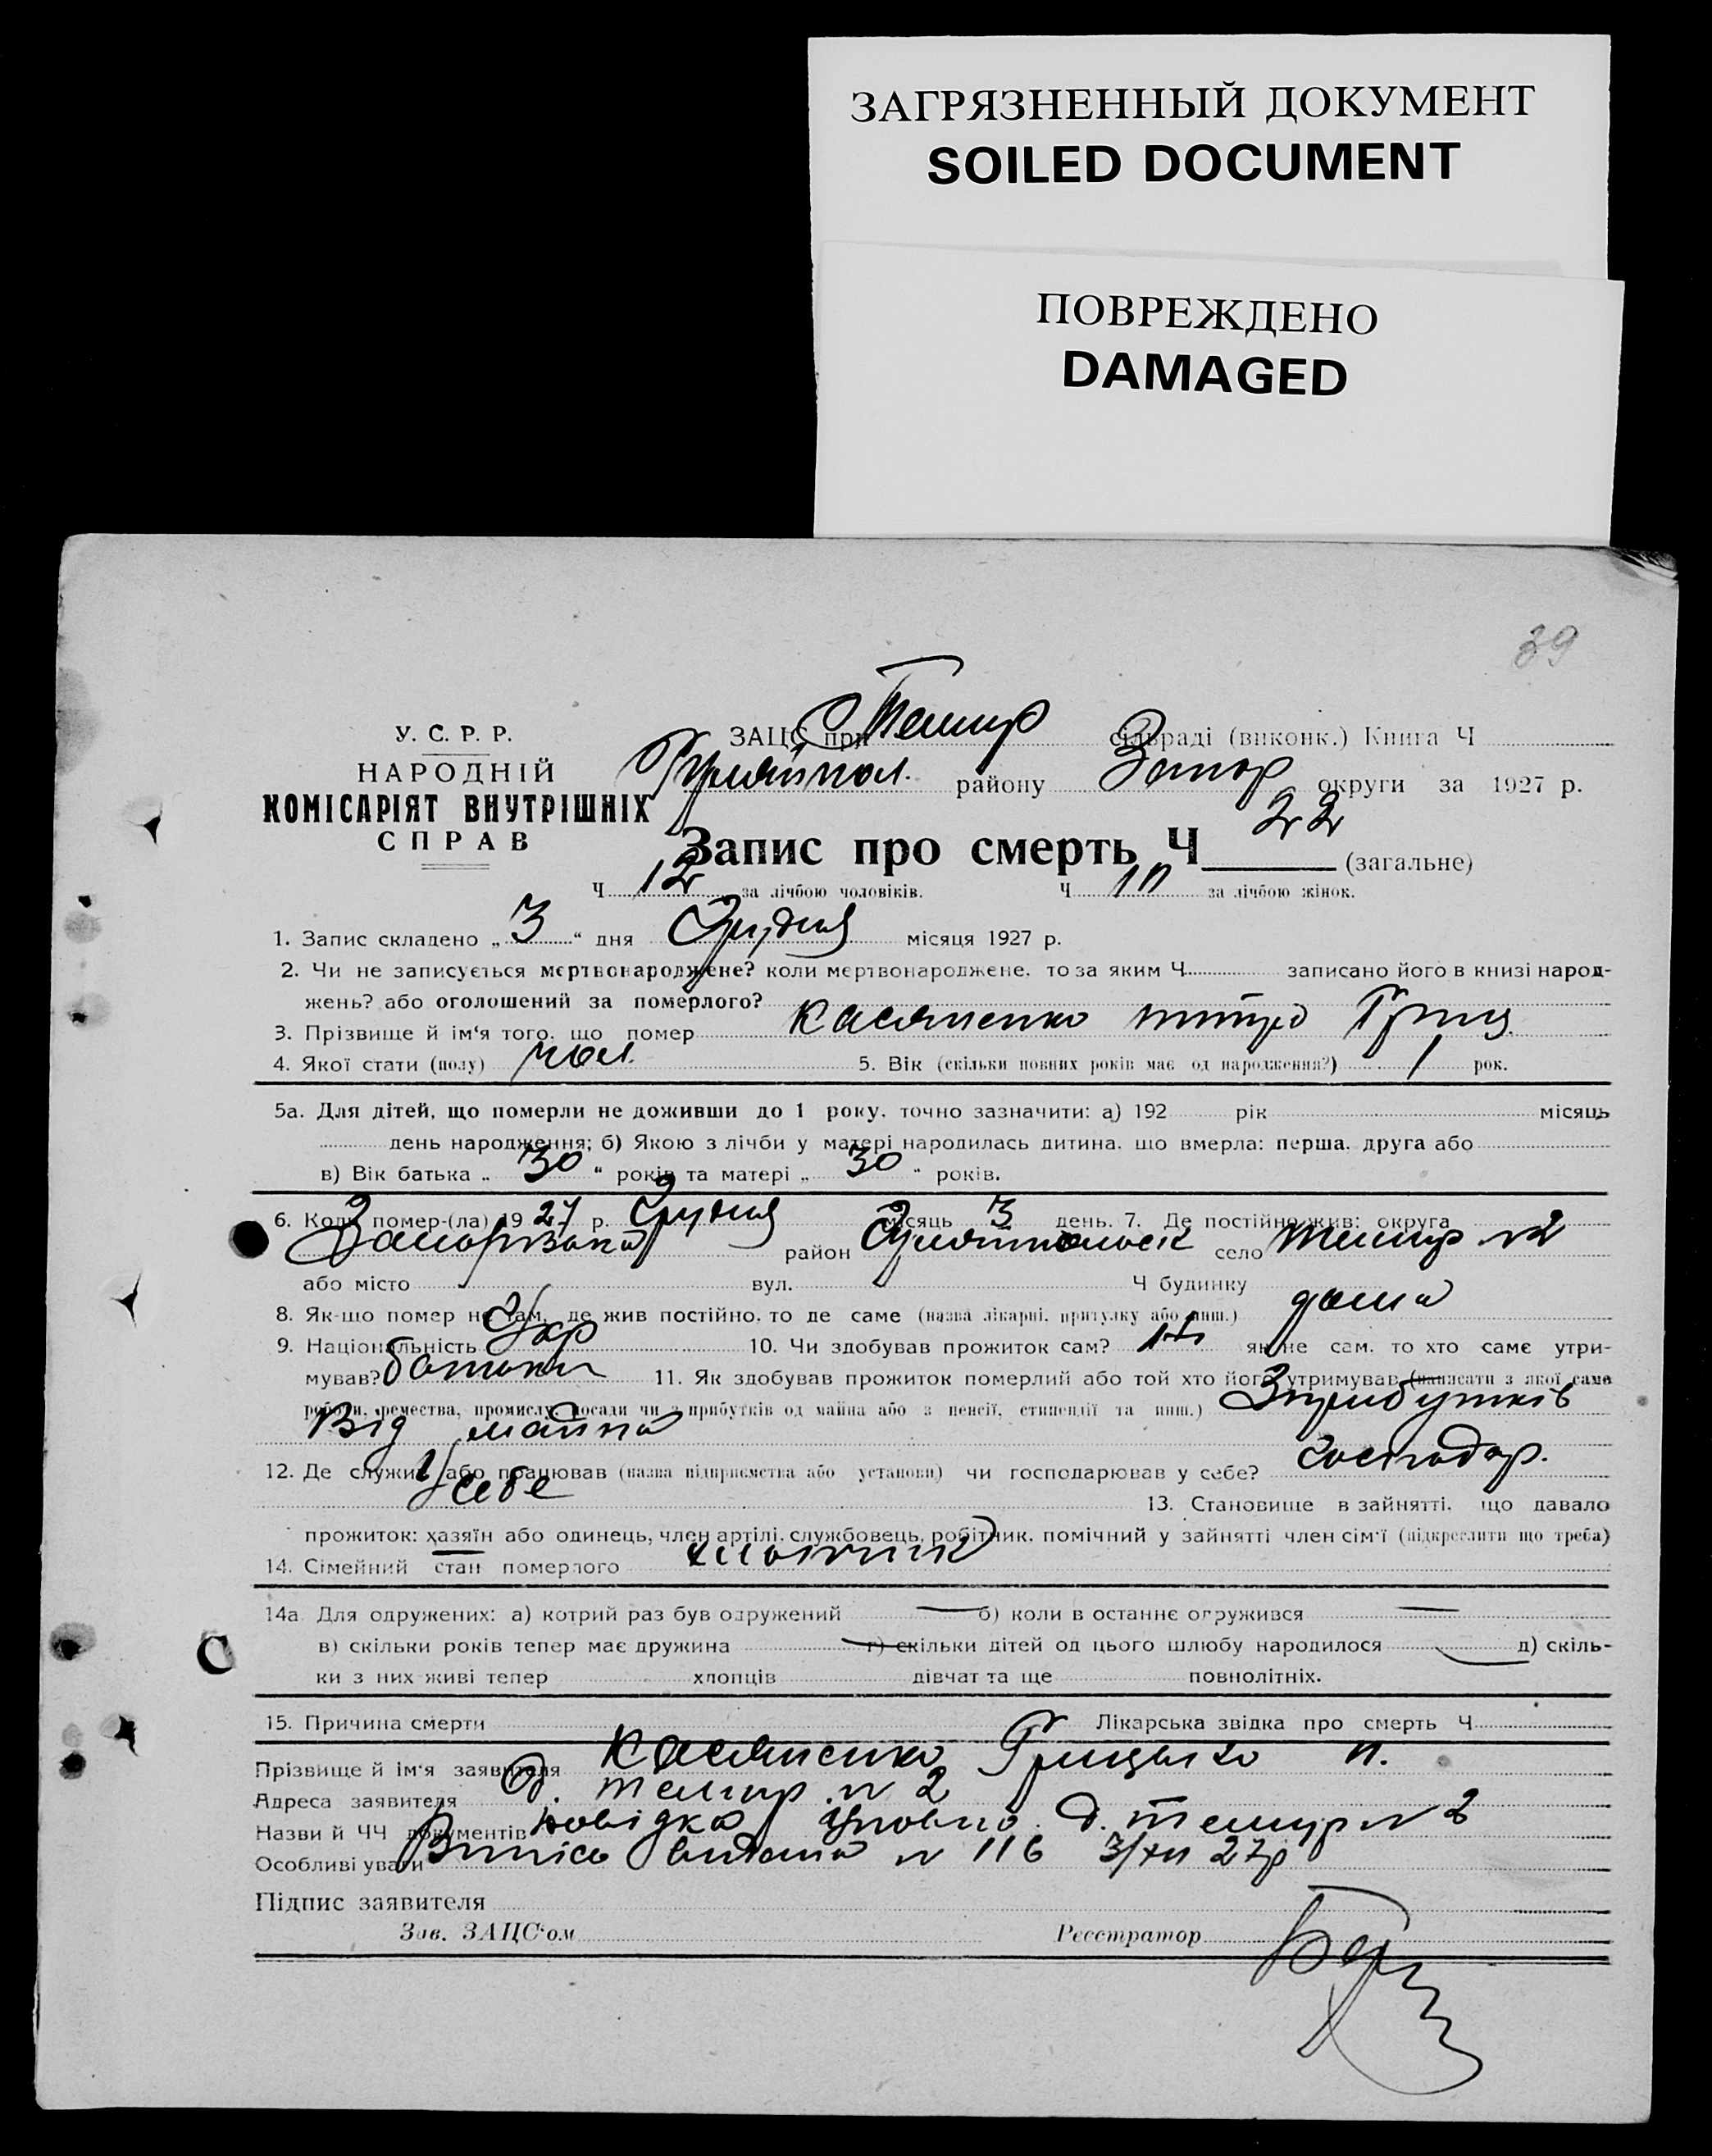 ЗАГРЯЗНЕННЫЙ ДОКУМЕНТ
SOILED DOCUMENT
ПОВРЕЖДЕНО
DAMAGED
39
У. С. Р. Р.
НАРОДНІЙ
КОМІСАРІЯТ ВНУТРІШНІХ
СПРАВ
ЗАЦС при Темир сільраді (виконк.) Книга Ч
району Запор округи за 1927 р.
Запис про смерть Ч 22 (загальне)
Ч 12 за лічбою чоловіків. Ч за лічбою жінок.
1. Запис складено „ 3 “ дня Грудня місяця 1927 р.
2. Чи не записується мертвонароджене? коли мертвонароджене, то за яким Ч записано його в книзі народ-
жень? або оголошений за померлого?
3. Прізвище й ім'я того, що помер Касяненко Гриц
4. Якої стати (полу) чол. 5. Вік (скільки повних років має од народження?) 1 рок.
5а. Для дітей, що померли не доживши до 1 року, точно зазначити: а) 192 рік місяць
день народження; б) Якою з лічби у матері народилась дитина, що вмерла: перша, друга або
в) Вік батька „ 30 “ років та матері „ 30 “ років.
6. Коли помер-(ла) 19 27 р. Грудня місяць 3 день. 7. Де постійно жив: округа
Запорізька район село Темир №2
або місто вул. Ч будинку
8. Як-що помер не там, де жив постійно, то де саме (назва лікарні, притулку або инш.) дома
9. Національність Укр 10. Чи здобував прожиток сам? ні як не сам, то хто саме утри-
мував? батьки 11. Як здобував прожиток померлий або той хто його утримував (написати з якої саме
роботи, ремества, промислу, посади чи з прибутків од майна або з пенсії, стипендії та инш.) Зприбутків
Від майна
12. Де служив або працював (назва підприємства або установи) чи господарював у себе? господар.
У себе
13. Становище в зайнятті, що давало
прожиток: хазяїн або одинець, член артілі, службовець, робітник, помічний у зайнятті член сім'ї (підкреслити що треба)
14. Сімейний стан померлого хлопчик
14а Для одружених: а) котрий раз був одружений б) коли в останнє одружився
в) скільки років тепер має дружина г) скільки дітей од цього шлюбу народилося д) скіль-
ки з них живі тепер хлопців дівчат та ще повнолітніх.
15. Причина смерти Лікарська звідка про смерть Ч
Прізвище й ім'я заявителя Касяненко Грицько п.
Адреса заявителя с. Темир № 2
Назви й ЧЧ документів Довідка с. Темир № 2
Особливі уваги Випись видана № 116 3/XII 27р
Підпис заявителя
Зав. ЗАЦС'ом Реєстратор